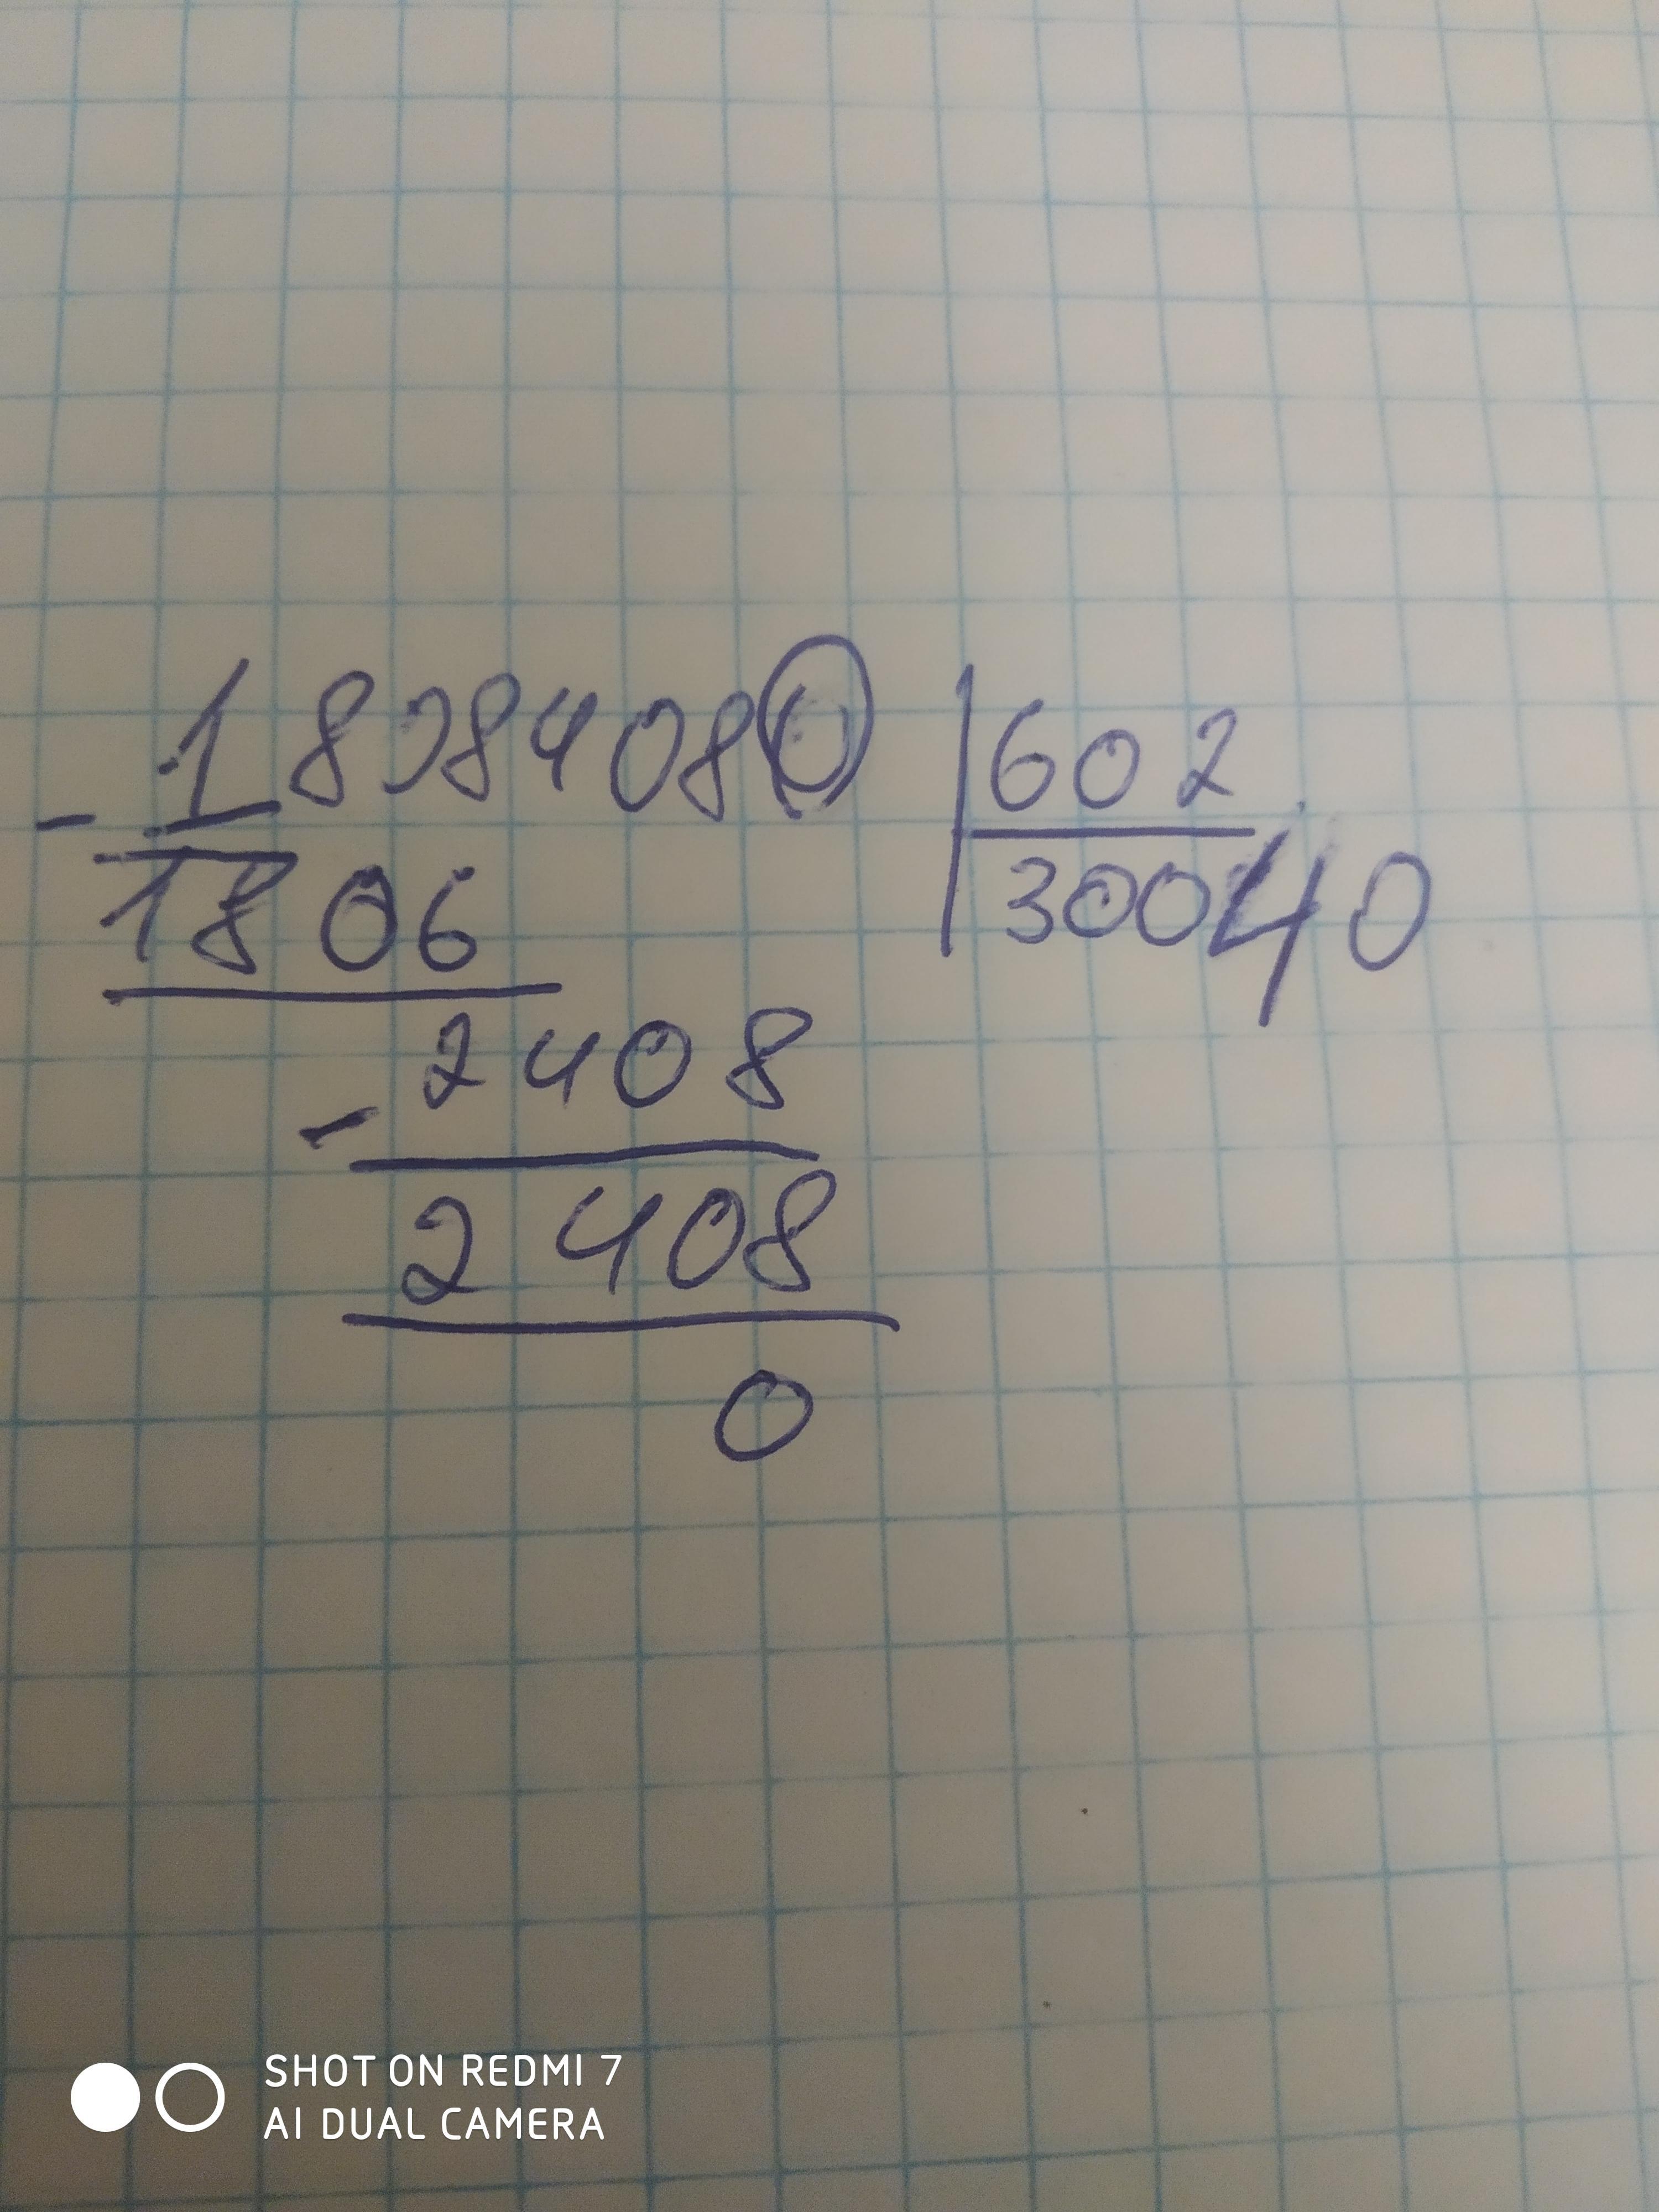 - 18084080 | 602
1806 30040
2408
-
2408
0
SHOT ON REDMI 7
AI DUAL CAMERA